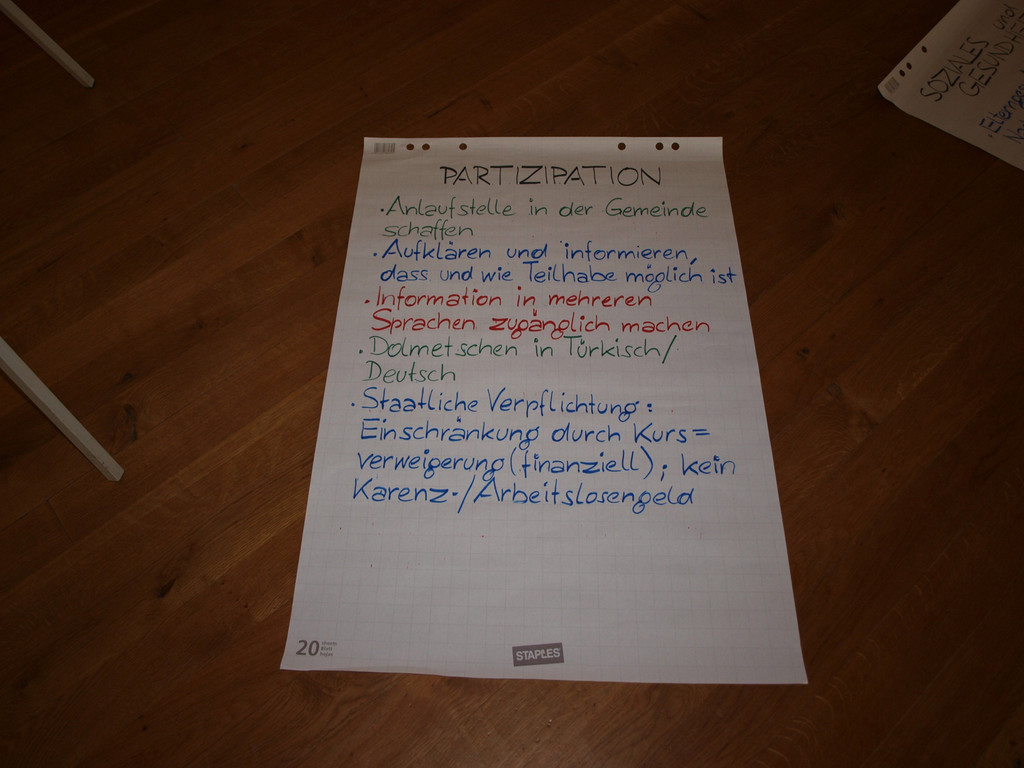 PARTIZIPATION
· Anlaufstelle in der Gemeinde
schaffen
· Aufklären und informieren,
dass und wie Teilhabe möglich ist
· Information in mehreren
Sprachen zugänglich machen
· Dolmetschen in Türkisch/
Deutsch
· Staatliche Verpflichtung:
Einschränkung durch Kurs=
verweigerung (finanziell); kein
Karenz-/Arbeitslosengeld
20
STAPLES
SOZIALES und
GESUNDHEIT